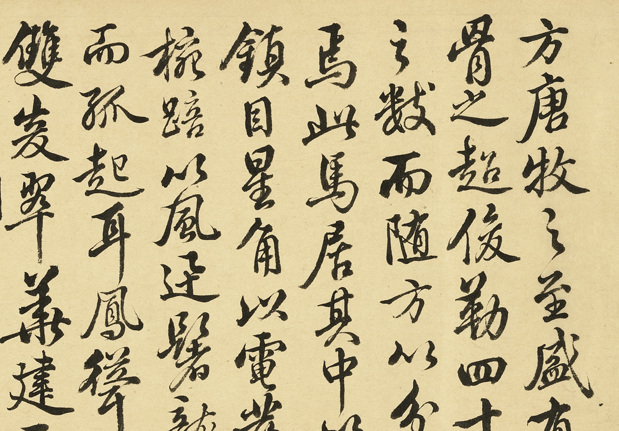 方唐牧之至盛有
骨之超俊勒四十
之數而随方以分
焉此馬居其中以
鎮目星角以電
椀踣以風迅鬐龍
而孤起耳鳳聳
雙翠華建